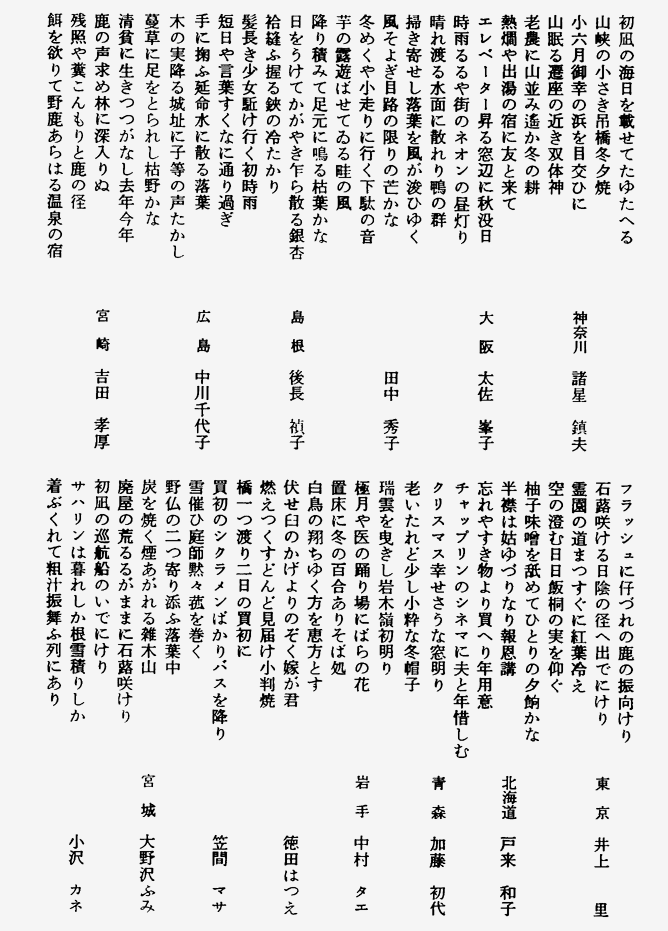 初凪の海日を載せてたゆたへる
山峡の小さき吊橋冬夕焼
小六月御幸の浜を目交ひに
山眠る遷座の近き双体神
老農に山並み遙か冬の耕
熱燗や出湯の宿に友と来て
エレベーター昇る窓辺に秋没日
時雨るるや街のネオンの昼灯り
晴れ渡る水面に散れり鴨の群
掃き寄せし落葉を風が浚ひゆく
風そよぎ目路の限りの芒かな
冬めくや小走りに行く下駄の音
芋の露遊ばせてゐる畦の風
降り積みて足元に鳴る枯葉かな
日をうけてかがやき乍ら散る銀杏
袷縫ふ握る鋏の冷たかり
髪長き少女駈け行く初時雨
短日や言葉すくなに通り過ぎ
手に掬ふ延命水に散る落葉
木の実降る城址に子等の声たかし
蔓草に足をとられし枯野かな
清貧に生きつつがなし去年今年
鹿の声求め林に深入りぬ
残照や糞こんもりと鹿の径
餌を欲りて野鹿あらはる温泉の宿
神奈川 諸星 鎮夫
大阪 太佐 峯子
田中 秀子
島根 後長 禎子
広島 中川千代子
宮崎 吉田 孝厚
フラッシュに仔づれの鹿の振向けり
石蕗咲ける日陰の径へ出でにけり
霊園の道まつすぐに紅葉冷え
空の澄む日日飯桐の実を仰ぐ
柚子味噌を舐めてひとりの夕餉かな
半襟は姑ゆづりなり報恩講
忘れやすき物より買へり年用意
チャップリンのシネマに夫と年惜しむ
クリスマス幸せさうな窓明り
老いたれど少し小粋な冬帽子
瑞雲を曳きし岩木嶺初明り
極月や医の踊り場にばらの花
置床に冬の百合ありそば処
白鳥の翔ちゆく方を恵方とす
伏せ臼のかげよりのぞく嫁が君
燃えつくすどんど見届け小判焼
橋一つ渡り二日の買初に
買初のシクラメンばかりバスを降り
雪催ひ庭師黙々菰を巻く
野仏の二つ寄り添ふ落葉中
炭を焼く煙あがれる雑木山
廃屋の荒るるがままに石蕗咲けり
初凪の巡航船のいでにけり
サハリンは暮れしか根雪積りしか
着ぶくれて粗汁振舞ふ列にあり
東京 井上 里
北海道 戸来 和子
青森 加藤 初代
岩手 中村 タエ
徳田はつえ
笠間 マサ
宮城 大野沢ふみ
小沢 カネ